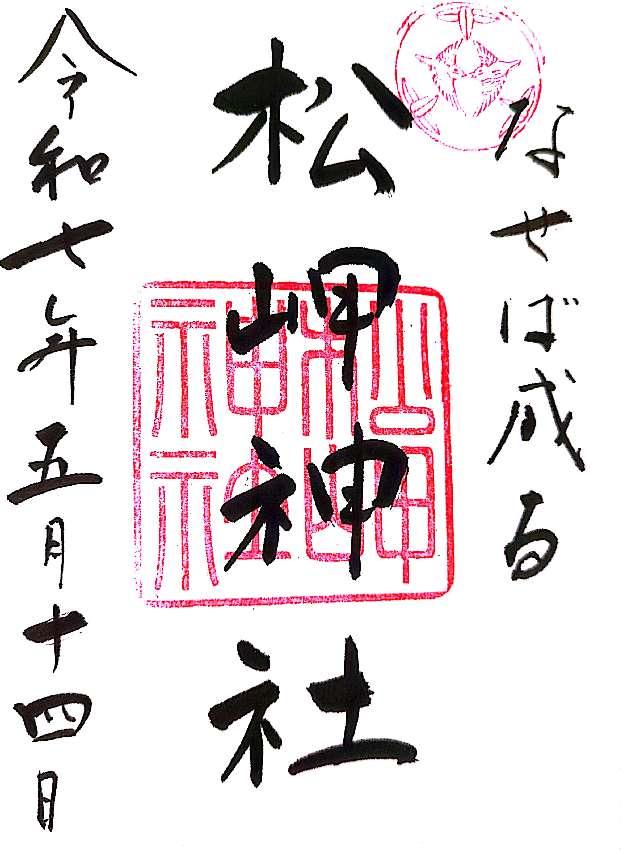 なせば成る
松岬神社
令和七年五月十四日
松岬神社